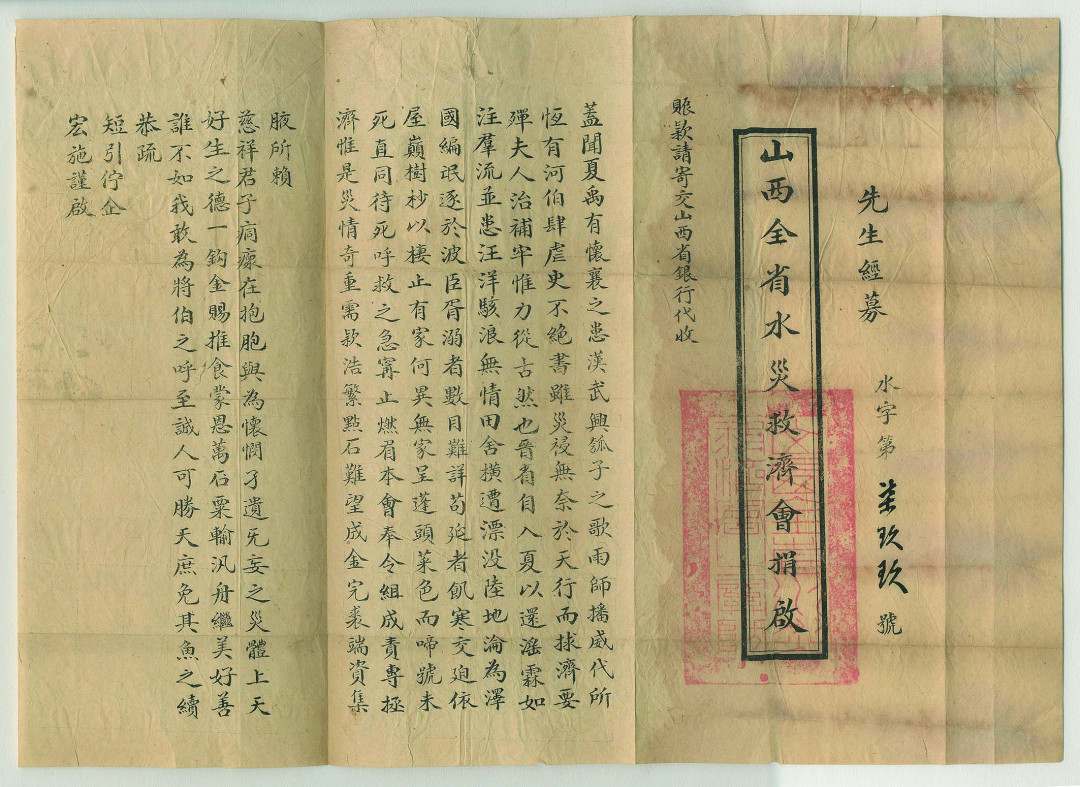 先生經募
水字第柒玖玖號
山西全省水災救濟會捐啟
賑款請寄交山西省銀行代收
蓋聞夏禹有懷襄之患漢武興瓠子之歌雨師播威代所
恆有河伯肆虐史不絕書雖災祲無奈於天行而捄濟要
殫夫人治補牢惟力從古然也晋省自入夏以還滛霖如
注羣流並患汪洋駭浪無情田舍橫遭漂没陸地淪為澤
國編氓逐於波臣胥溺者數目難詳苟延者飢寒交迫依
屋巔樹杪以棲止有家何異無家呈蓬頭菜色而啼號未
死直同待死呼救之急甯止燃眉本會奉令組成責專拯
濟惟是災情奇重需款浩繁點石難望成金完裘端資集
腋所賴
慈祥君子痌瘝在抱胞與為懷憫孑遺旡妄之災體上天
好生之德一鈎金賜推食蒙恩萬石粟輸汎舟繼美好善
誰不如我敢為將伯之呼至誠人可勝天庶免其魚之續
恭疏
短引佇企
宏施謹啟